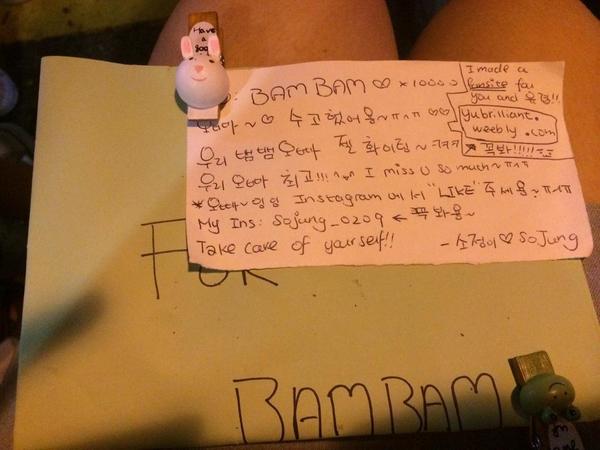 Have
a
good
: BAM BAM ♡ × 10000
오빠~♡ 수고했어용~ㅠㅅㅠ ♡♡
우리 뱀뱀오빠 화이팅~ㅋㅋㅋ
우리 오빠 최고!!! ^^ I miss U so much~ㅠㅅㅠ
*오빠~ Instagram 에서 "LIKE" 주세용~ㅠㅅㅠ
My Ins: Sojung_0209 ← 꼭 봐용~
Take care of yourself!! - 소정이♡SoJung
I made a
fansite for
you and 유겸!!
yubrilliant.
weebly.com
*꼭봐!!!!!
FOR
BAMBAM